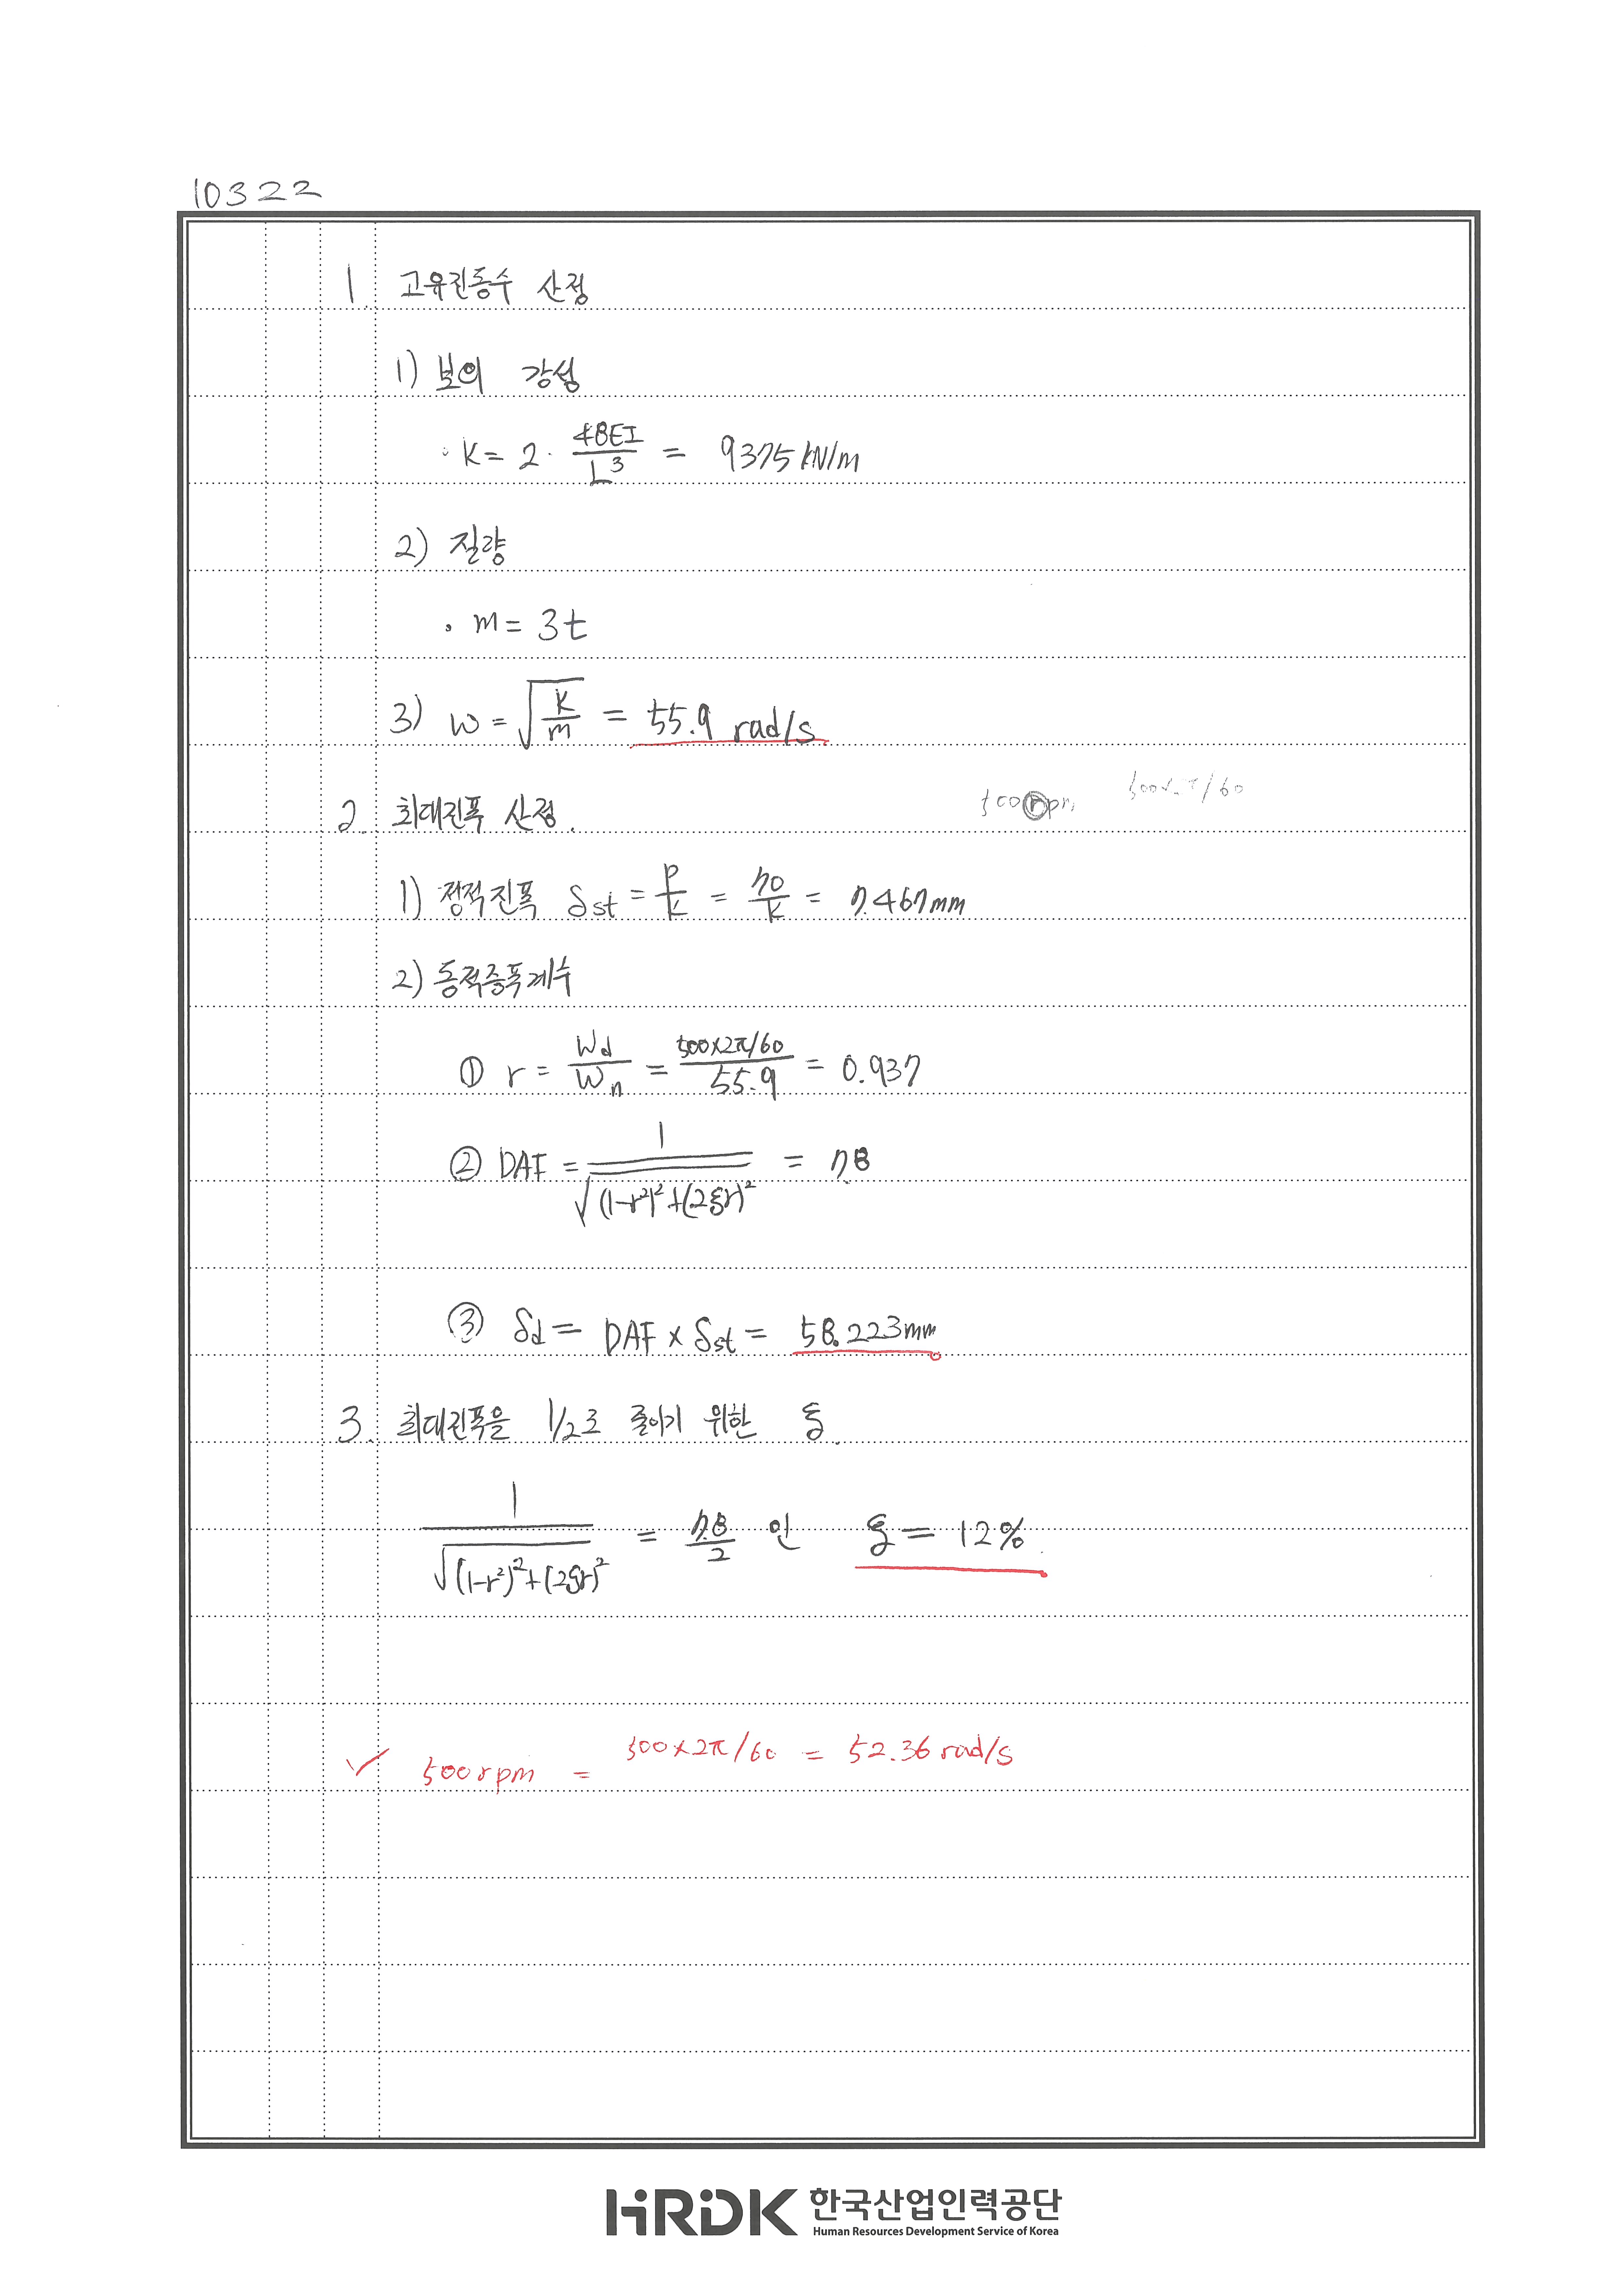 10322
1. 고유진동수 산정
1) 보의 강성
· K = 2 · 48EI / L³ = 9375 kN/m
2) 질량
· m = 3t
3) w = √(k/m) = 55.9 rad/s
2. 최대진폭 산정. 500rpm
1) 정적진폭 δst = P/k = 70/k = 7.467mm
2) 동적증폭계수
① r = Wd/Wn = 500×2π/60 / 55.9 = 0.937
② DAF = 1 / √((1-r²)² + (2ξr)²) = 7.8
③ δd = DAF × δst = 58.223mm
3. 최대진폭을 1/2로 줄이기 위한 ξ.
1 / √((1-r²)² + (2ξr)²) = 7.8/2 인 ξ = 12%
✓ 500rpm = 500×2π/60 = 52.36 rad/s
HRDK 한국산업인력공단
Human Resources Development Service of Korea